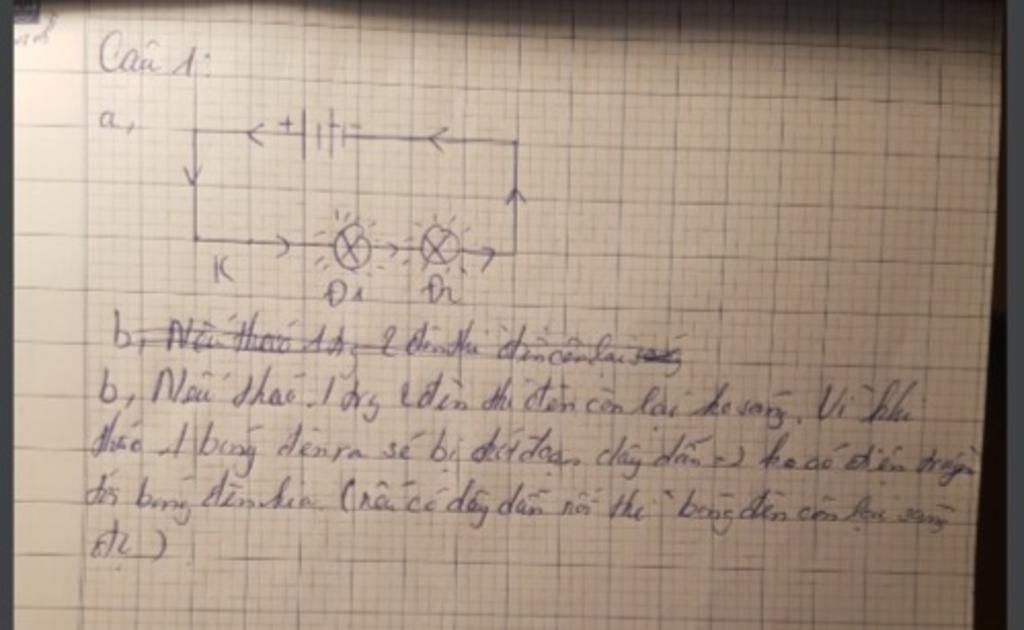 Câu 1:
a,
+ -
K
Đ1 Đ2
b, Nếu tháo 1 tr 2 đèn thì đèn còn lại sáng
b, Nếu tháo 1 trg 2 đèn thì đèn còn lại ko sáng. Vì khi
tháo 1 bóng đèn ra sẽ bị đứt đoạn dây dẫn => ko có điện truyền
tới bóng đèn kia. (nếu có dây dẫn nối thì bóng đèn còn lại sáng
đc)